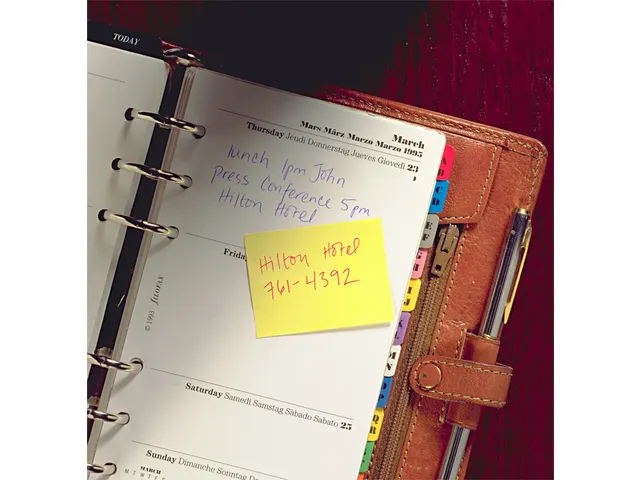 TODAY
March
Mars März Marzo Marzo 1995
Thursday Jeudi Donnerstag Jueves Giovedì 23
lunch 1pm John
Press Conference 5pm
Hilton Hotel
Frida
Hilton Hotel
761-4392
© 1993 filofax
Saturday Samedi Samstag Sàbado Sabato 25
Sunday Dimanche Sonntag Do
MARCH
M T W T F S
A
B
C
D
E
F